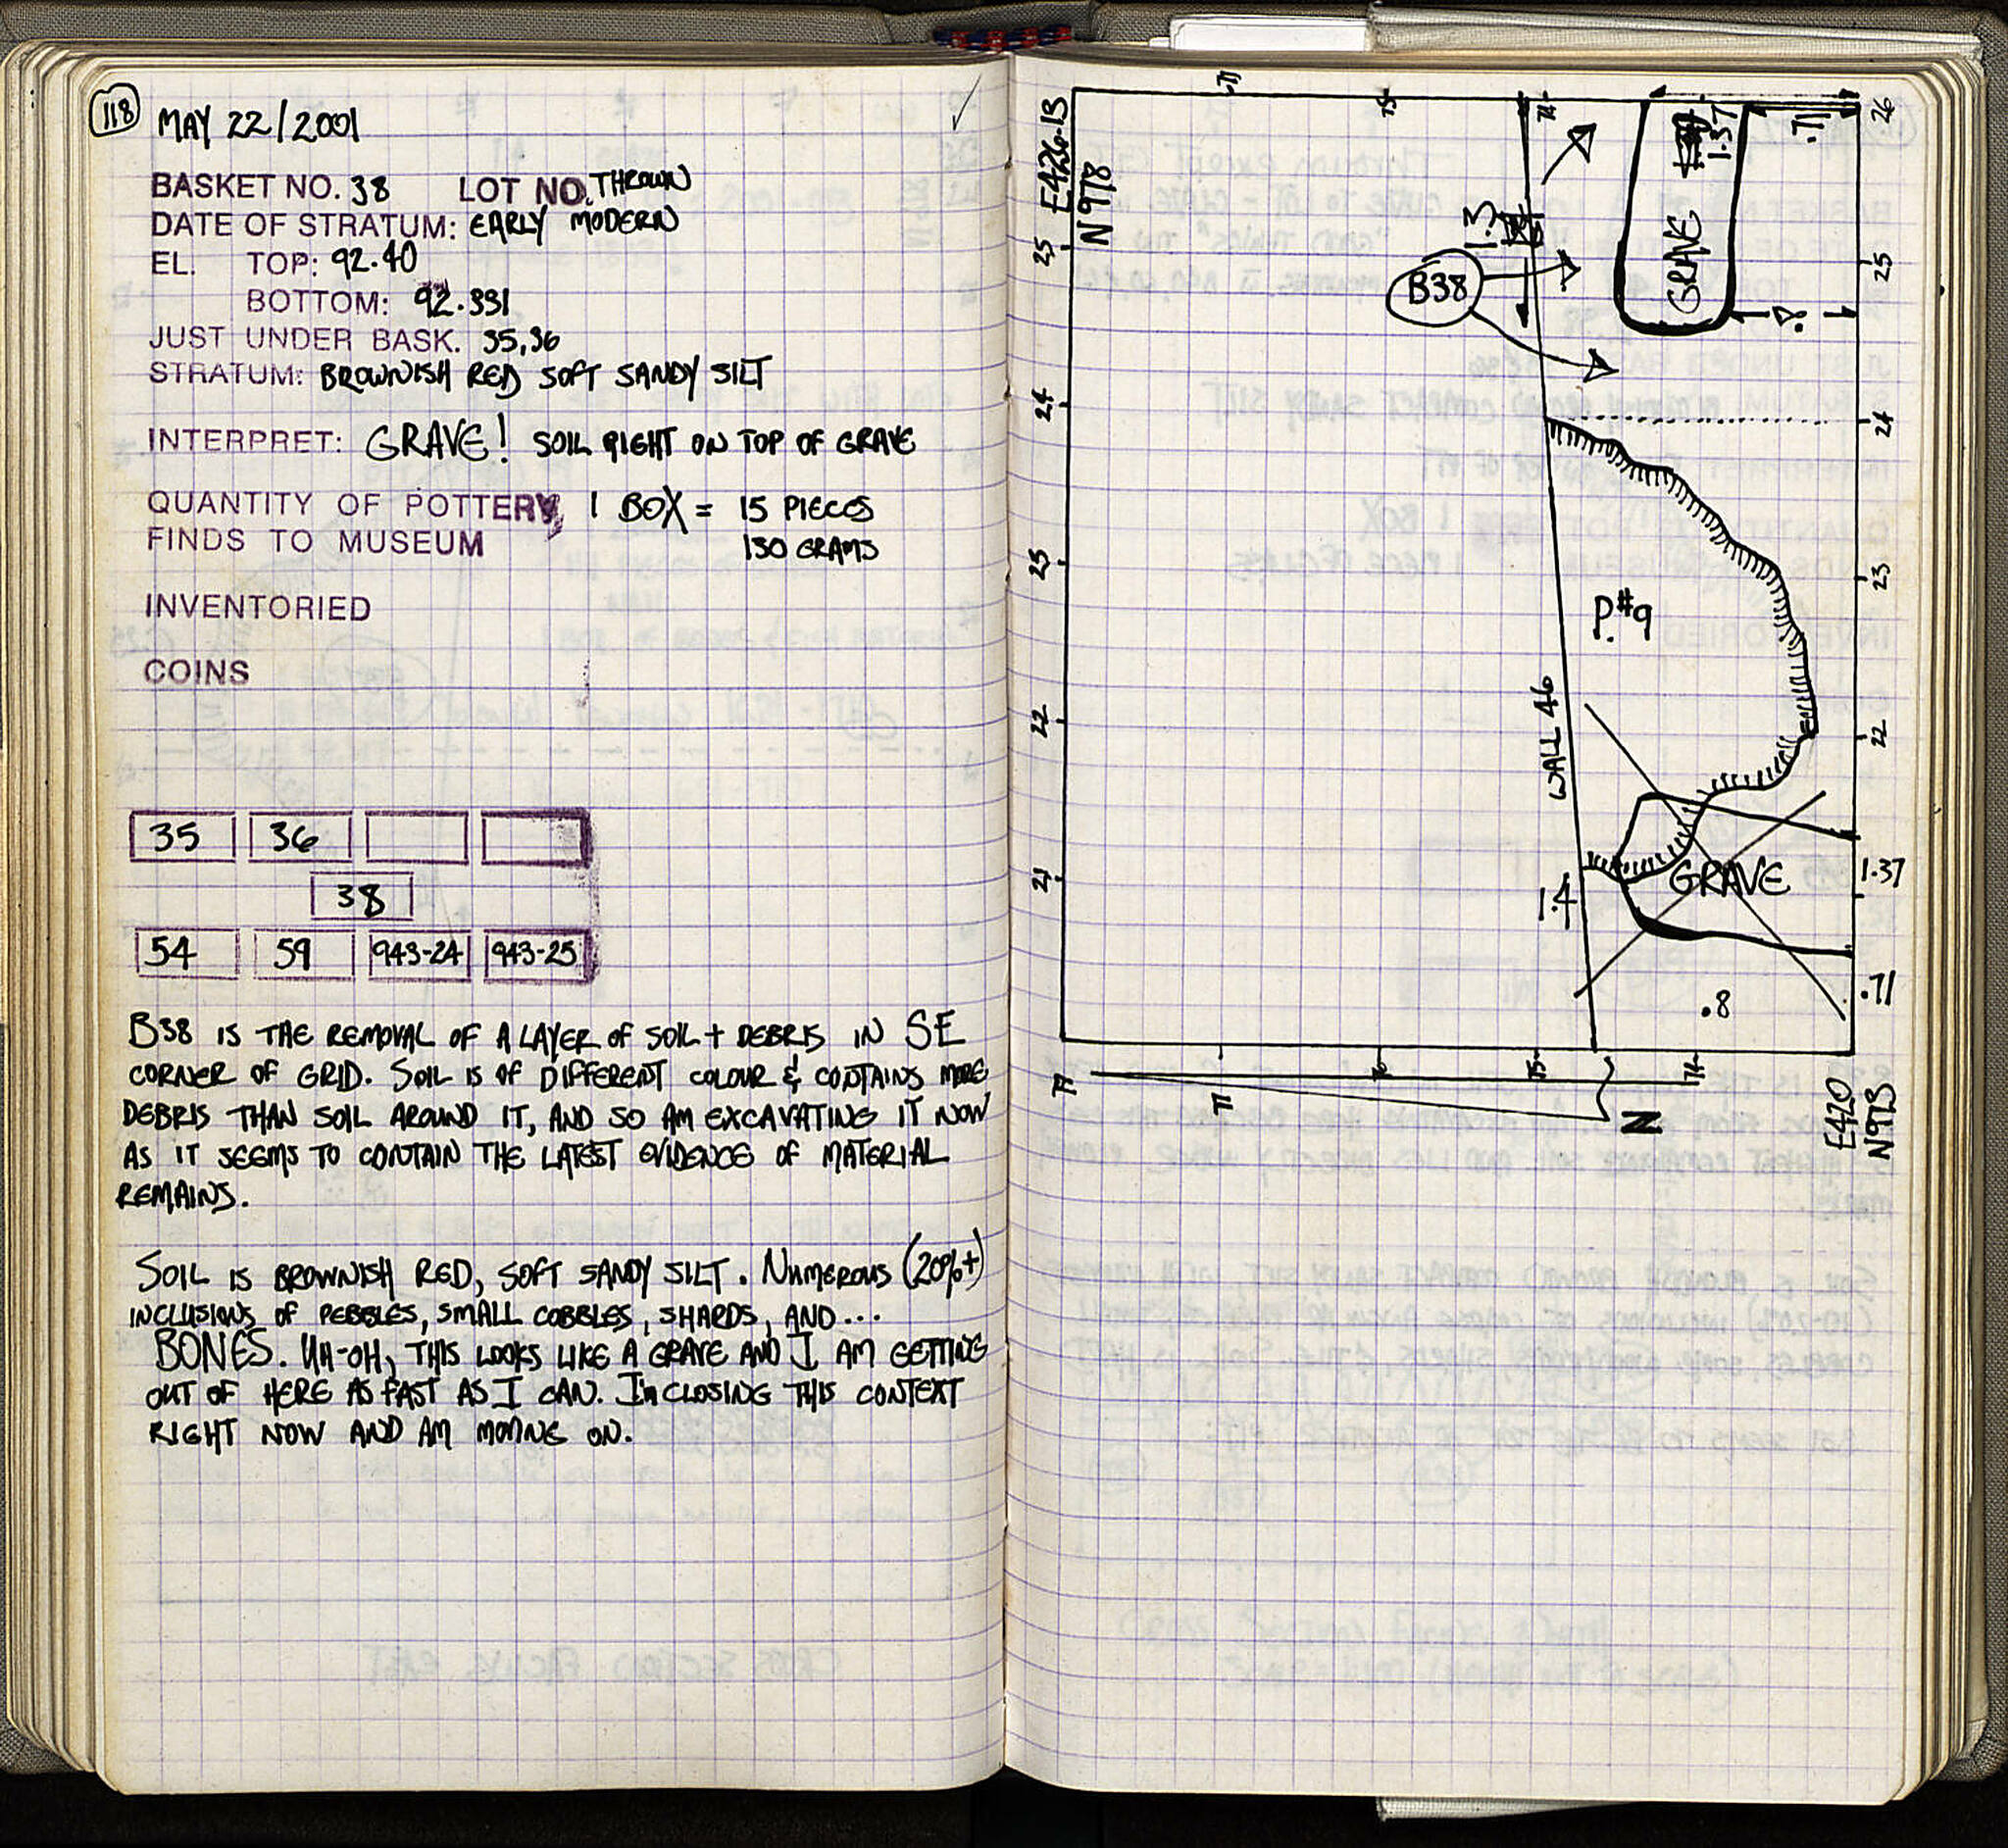 118
MAY 22/2001
BASKET NO. 38 LOT NO. THROWN
DATE OF STRATUM: EARLY MODERN
EL. TOP: 92.40
BOTTOM: 92.331
JUST UNDER BASK. 35,36
STRATUM: BROWNISH RED SOFT SANDY SILT
INTERPRET: GRAVE! SOIL RIGHT ON TOP OF GRAVE
QUANTITY OF POTTERY 1 BOX = 15 PIECES
FINDS TO MUSEUM 130 GRAMS
INVENTORIED
COINS
35 36
38
54 59 943-24 943-25
B38 IS THE REMOVAL OF A LAYER OF SOIL + DEBRIS IN SE
CORNER OF GRID. SOIL IS OF DIFFERENT COLOUR & CONTAINS MORE
DEBRIS THAN SOIL AROUND IT, AND SO AM EXCAVATING IT NOW
AS IT SEEMS TO CONTAIN THE LATEST EVIDENCE OF MATERIAL
REMAINS.
SOIL IS BROWNISH RED, SOFT SANDY SILT. NUMEROUS (20%+)
INCLUSIONS OF PEBBLES, SMALL COBBLES, SHARDS, AND...
BONES. UH-OH, THIS LOOKS LIKE A GRAVE AND I AM GETTING
OUT OF HERE AS FAST AS I CAN. I'M CLOSING THIS CONTEXT
RIGHT NOW AND AM MOVING ON.
E426.13
N978
77
75
74
26
1.37
.71
GRAVE
1.3
B38
.8
25
25
24
24
23
23
P.#9
22
22
WALL 46
21
GRAVE
1.37
1.4
.8
.71
77
76
75
74
N
E420
N973